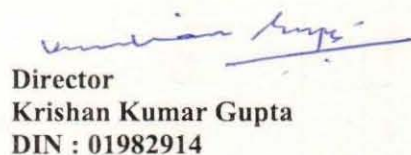 Director
Krishan Kumar Gupta
DIN : 01982914